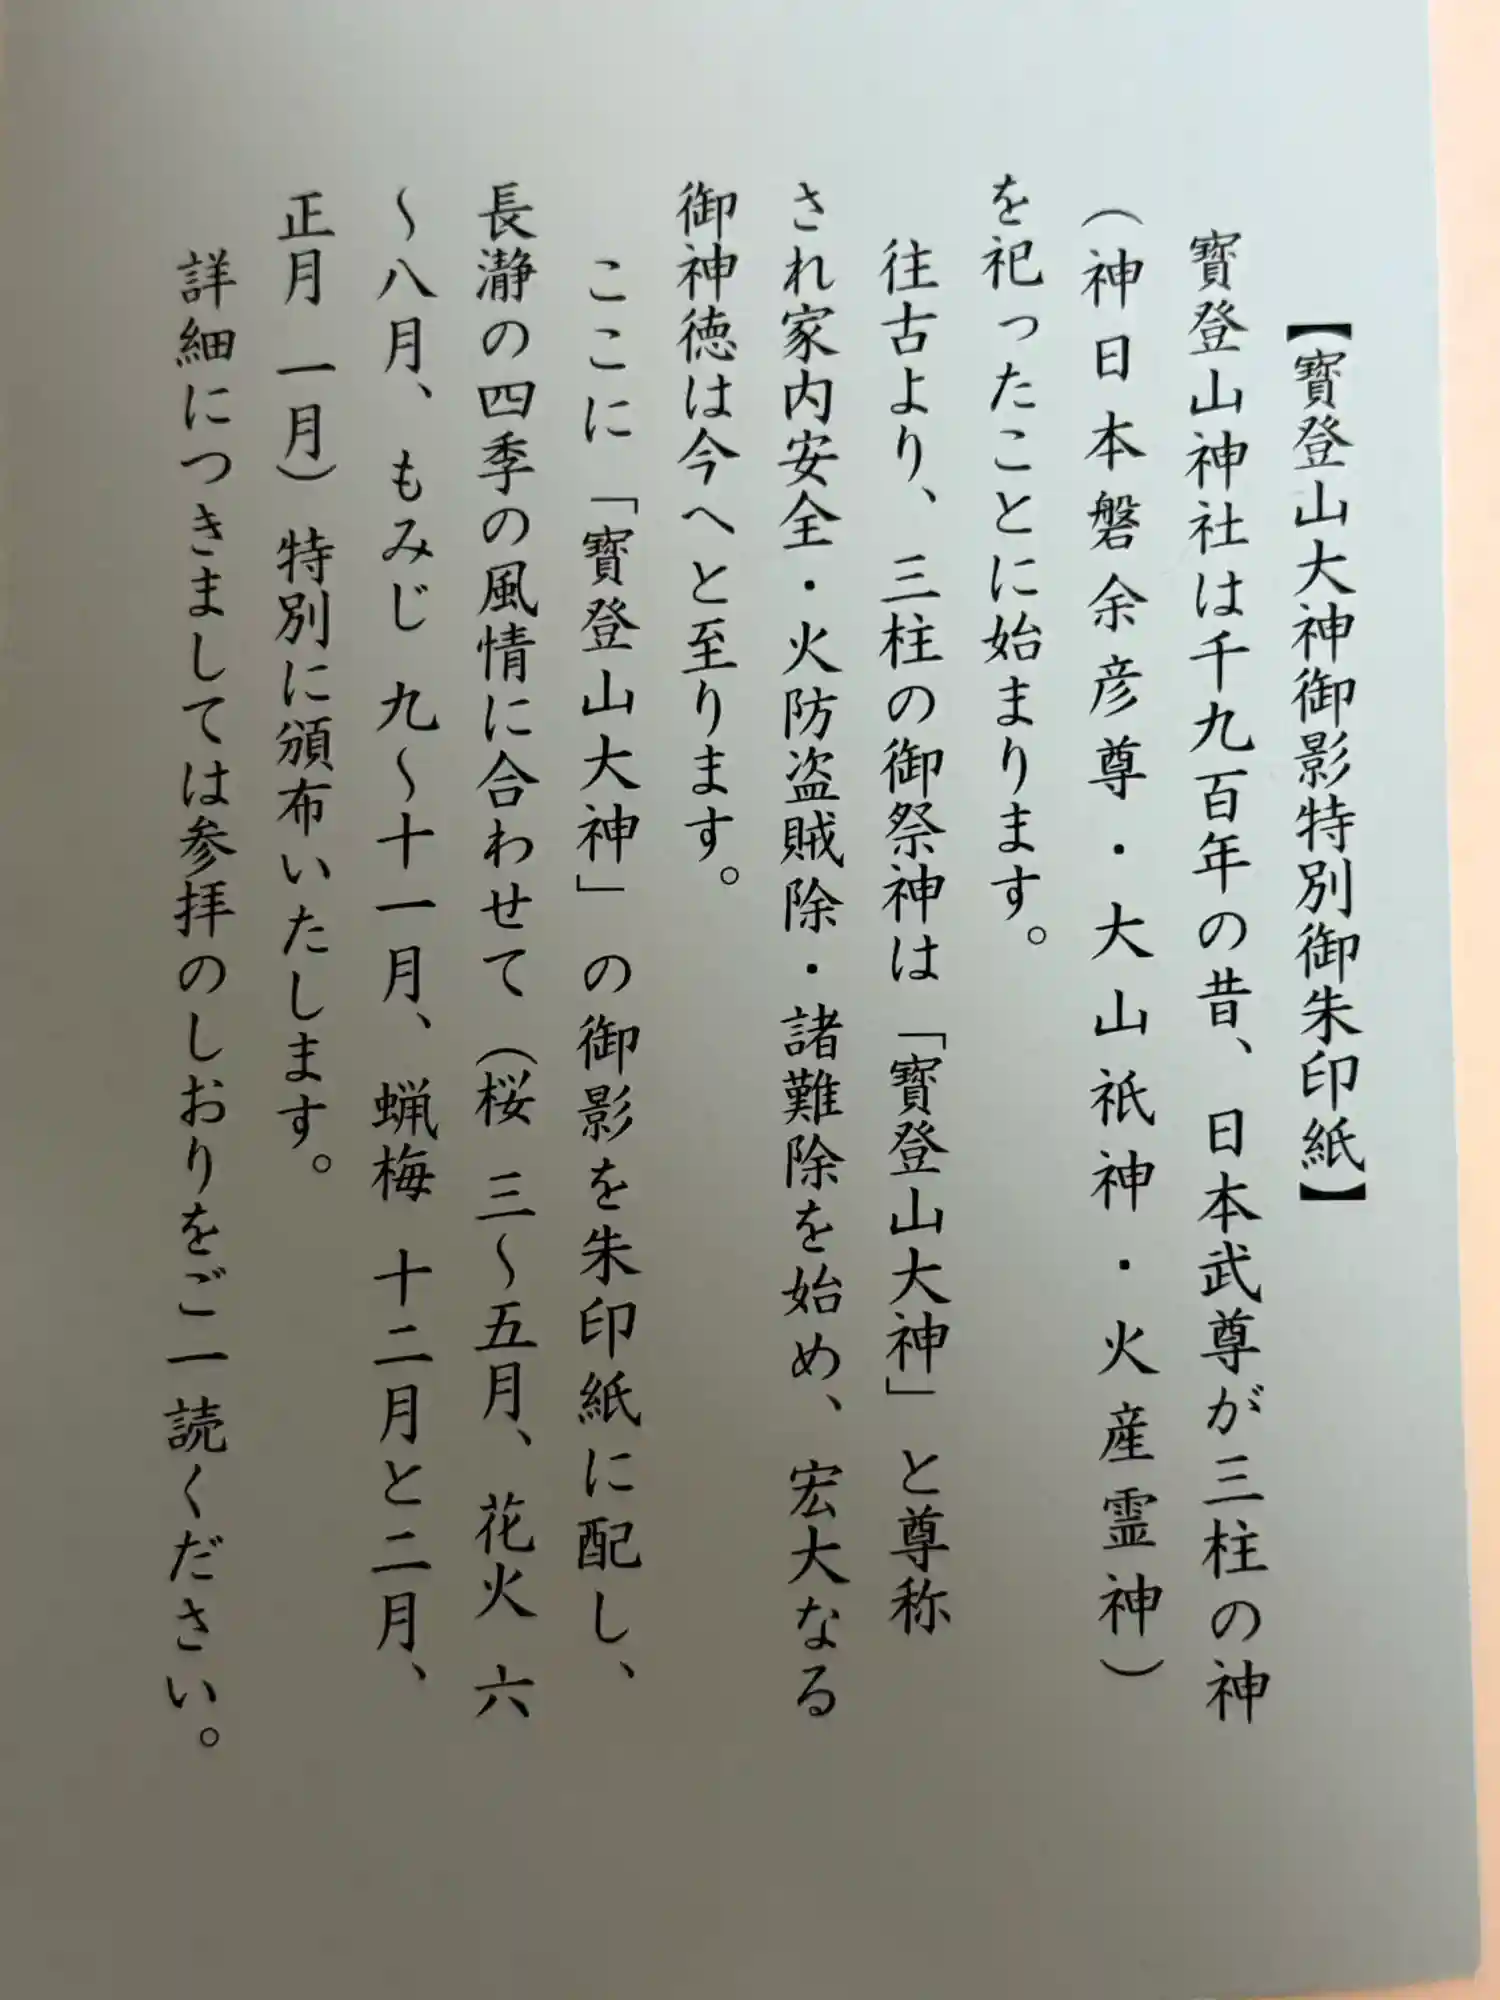 【寳登山大神御影特別御朱印紙】
寳登山神社は千九百年の昔、日本武尊が三柱の神
（神日本磐余彦尊・大山祇神・火産霊神）
を祀ったことに始まります。
往古より、三柱の御祭神は「寳登山大神」と尊称
され家内安全・火防盗賊除・諸難除を始め、宏大なる
御神徳は今へと至ります。
ここに「寳登山大神」の御影を朱印紙に配し、
長瀞の四季の風情に合わせて（桜 三～五月、花火 六
～八月、もみじ 九～十一月、蝋梅 十二月と二月、
正月 一月）特別に頒布いたします。
詳細につきましては参拝のしおりをご一読ください。